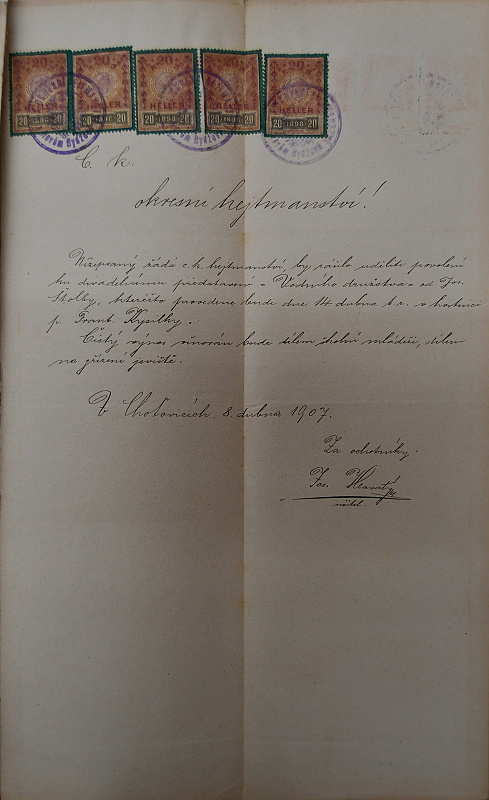 20 20 20 20 20
HELLER HELLER HELLER HELLER HELLER
20 1898 20 20 1898 20 20 1898 20 20 1898 20 20 1898 20
C. k.
okresní hejtmanství!
Nížepsaný žádá c. k. hejtmanství, by ráčilo uděliti povolení
ku divadelnímu představení „Vodního družstva“ od Jos.
Štolby, kteréžto provedeno bude dne 14. dubna t. r. v hostinci
p. Frant. Kysilky.
Čistý výnos věnován bude dílem školní mládeži, dílem
na zřízení jeviště.
V Choťovicích, 8. dubna 1907.
Za ochotníky.
Jos. Hlavatý
učitel.